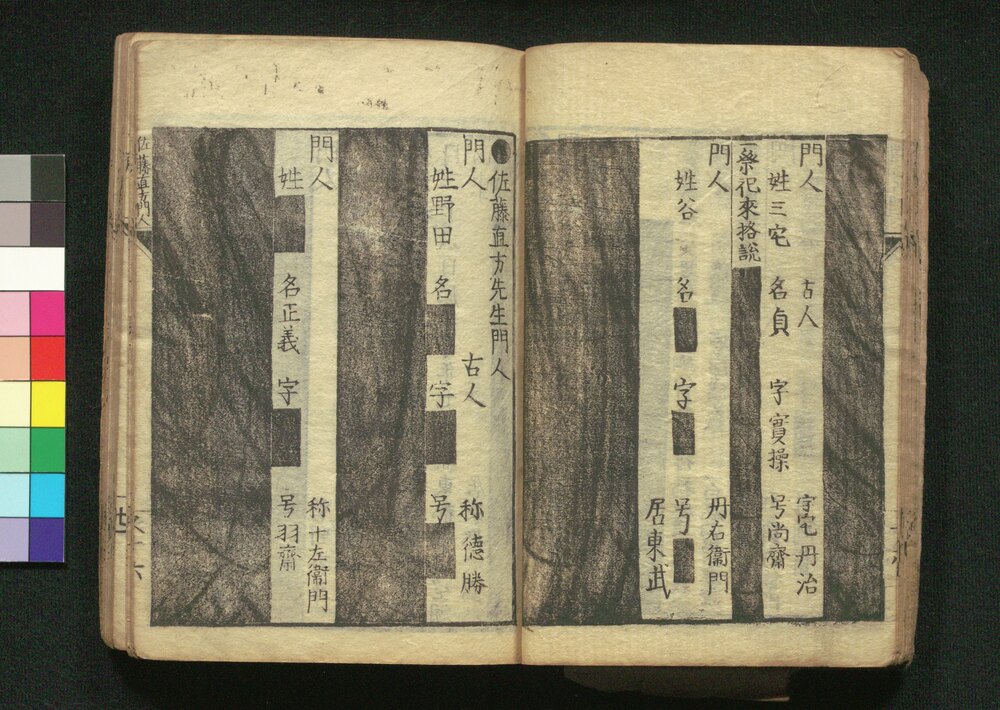 門人 古人 宇宅丹治
姓三宅 名貞 字實操 号尚齋
一祭祀來格説
門人 丹右衞門
姓谷 名 字 号
居東武
●佐藤直方先生門人
門人 古人 称徳勝
姓野田 名 字 号
門人 称十左衞門
姓 名正義 字 号羽齋
佐藤直方門人